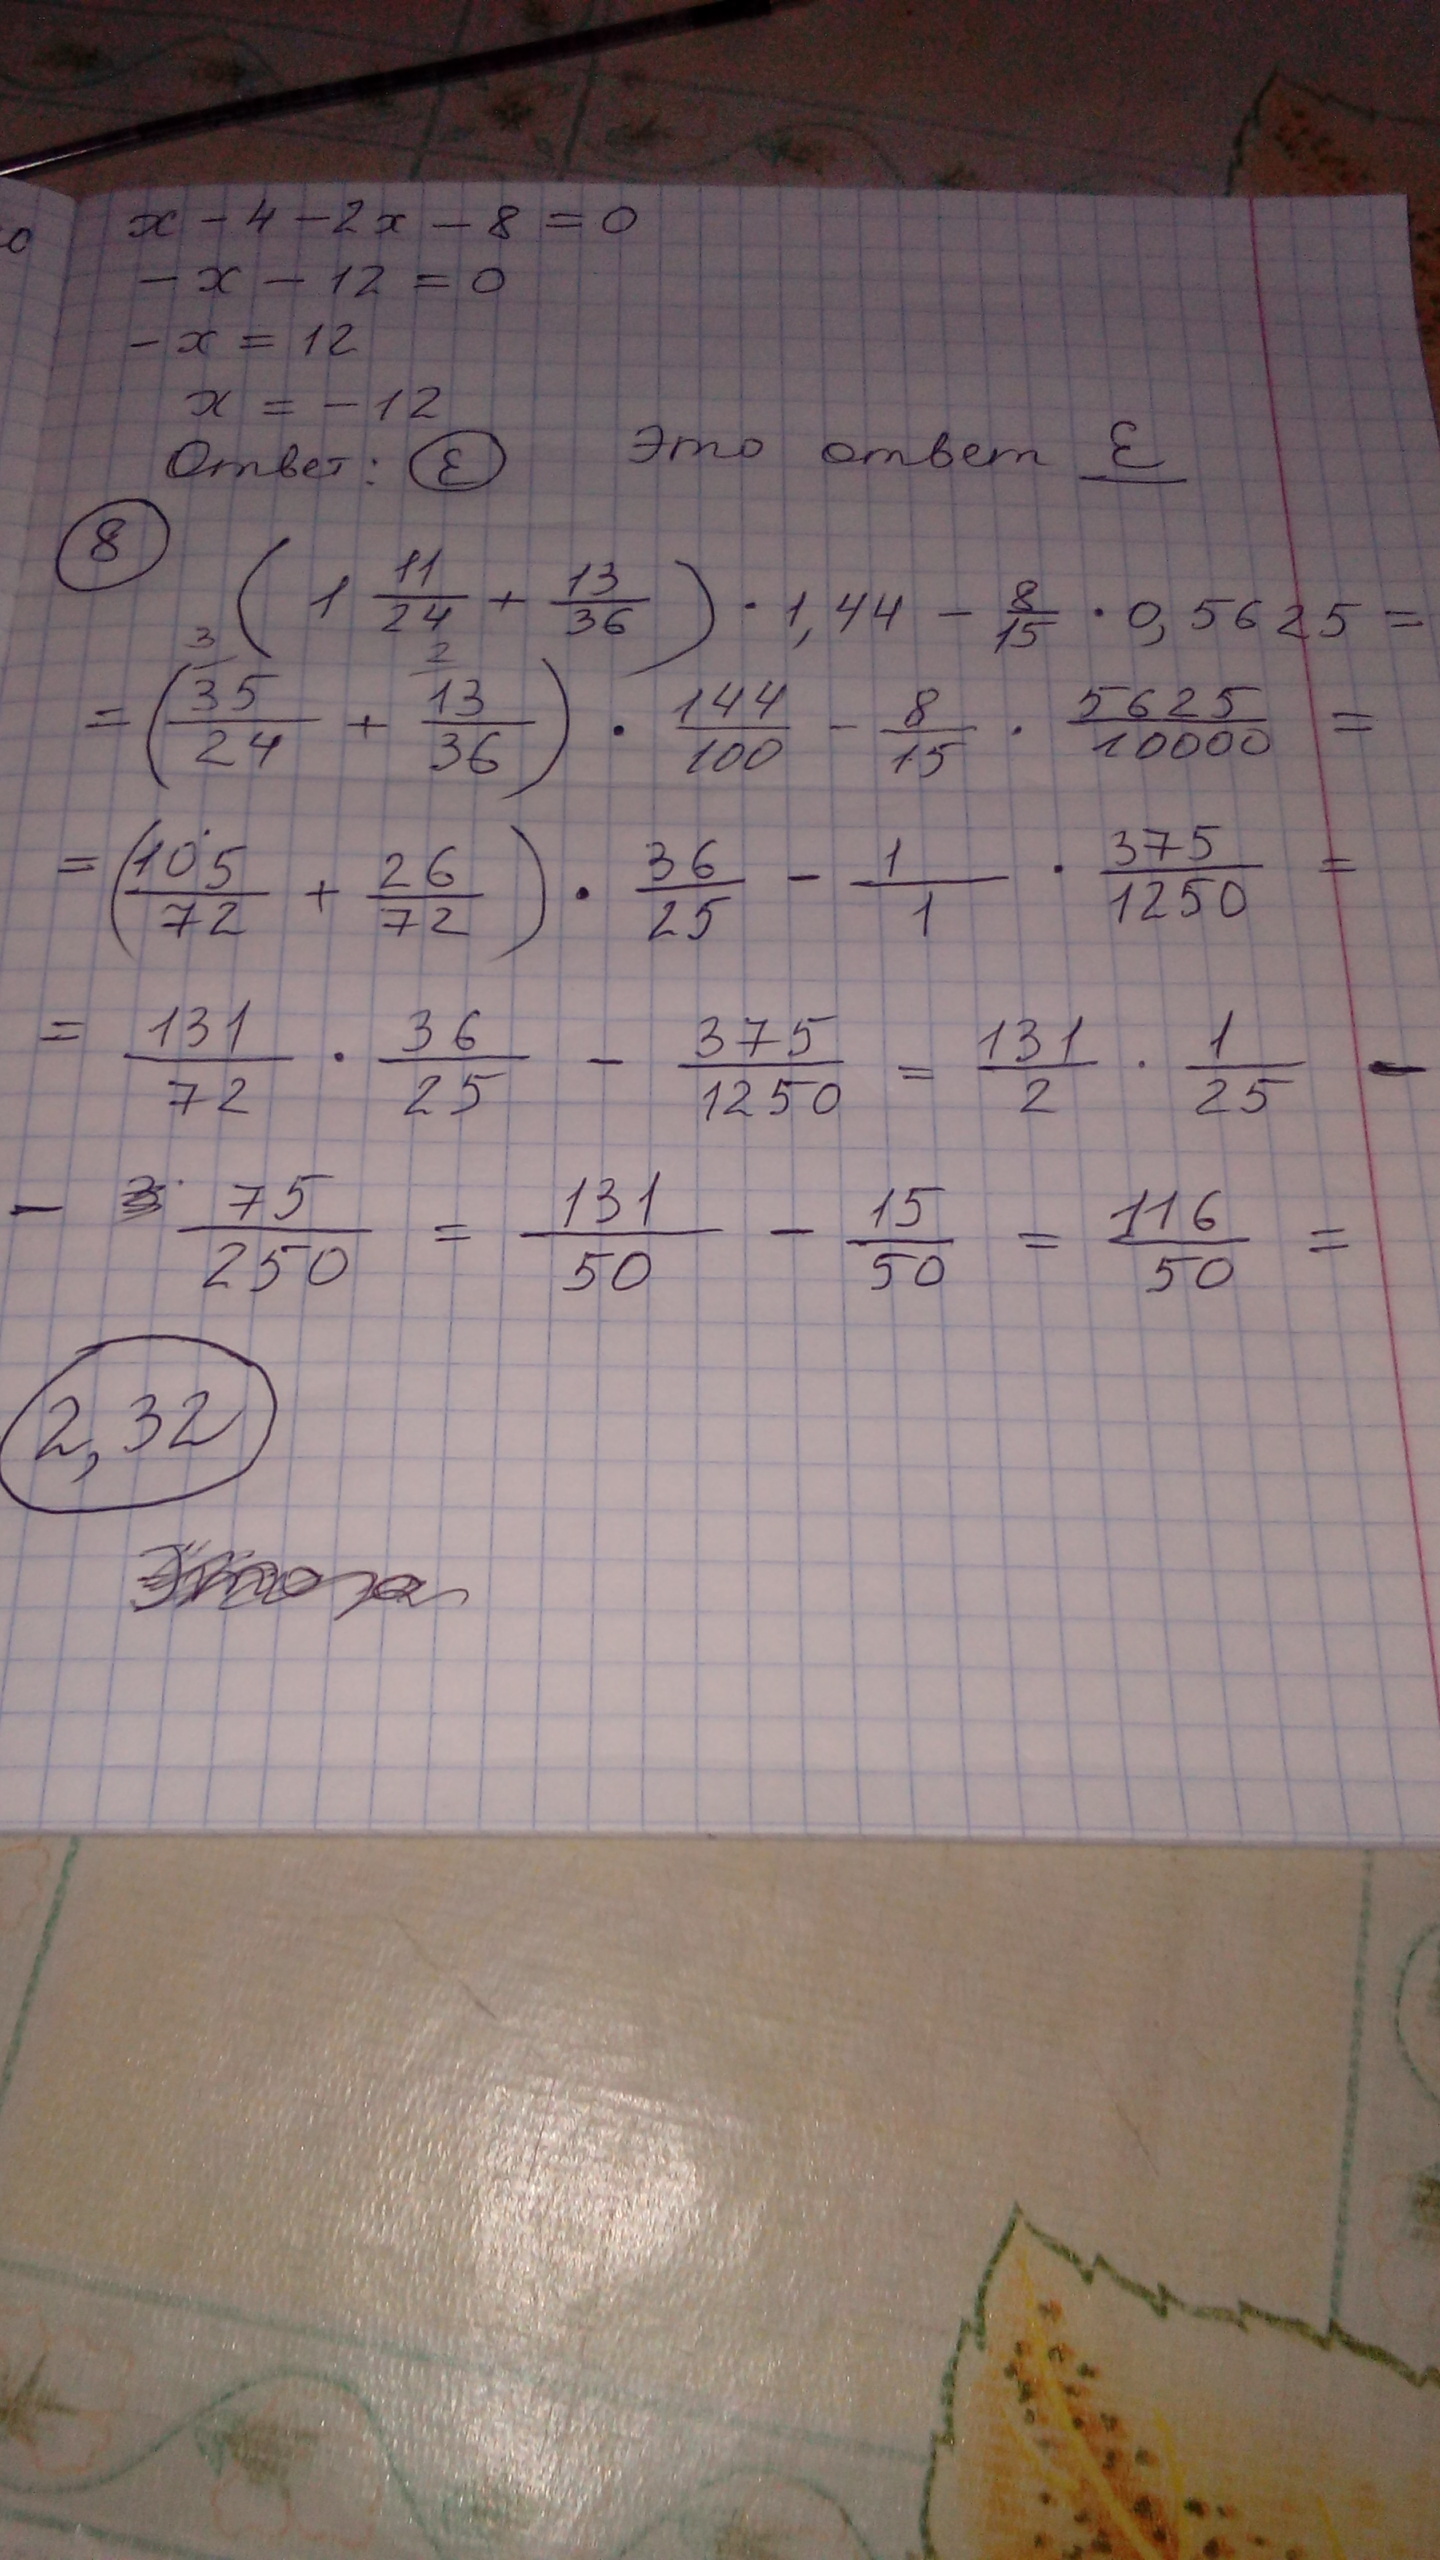 x - 4 - 2x - 8 = 0
- x - 12 = 0
- x = 12
x = - 12
Ответ: Е Это ответ Е
8
(1 11/24 + 13/36) · 1,44 - 8/15 · 0,5625 =
3 2
= (35/24 + 13/36) · 144/100 - 8/15 · 5625/10000 =
= (105/72 + 26/72) · 36/25 - 1/1 · 375/1250 =
= 131/72 · 36/25 - 375/1250 = 131/2 · 1/25 -
- 75/250 = 131/50 - 15/50 = 116/50 =
2,32